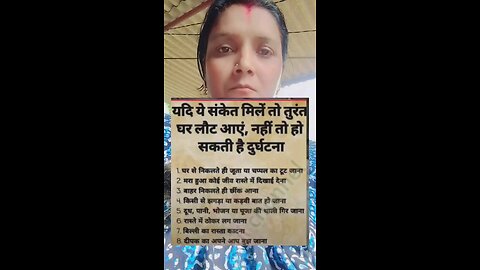 यदि ये संकेत मिलें तो तुरंत
घर लौट आएं, नहीं तो हो
सकती है दुर्घटना
1. घर से निकलते ही जूता या चप्पल का टूट जाना
2. मरा हुआ कोई जीव रास्ते में दिखाई देना
3. बाहर निकलते ही छींक आना
4. किसी से झगड़ा या कड़वी बात हो जाना
5. दूध, पानी, भोजन या पूजा की थाली गिर जाना
6. रास्ते में ठोकर लग जाना
7. बिल्ली का रास्ता काटना
8. दीपक का अपने आप बुझ जाना